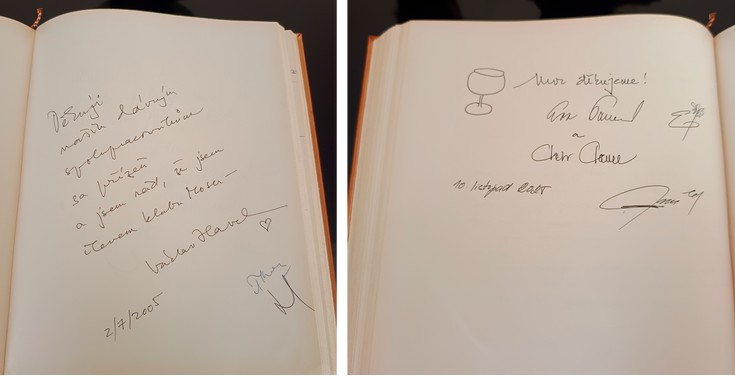 Děkuji
našim dávným
spolupracovníkům
za přízeň
a jsem rád, že jsem
členem klubu Moser –
Václav Havel
2/7/2005
Moc děkujeme!
a
10 listopad 2025